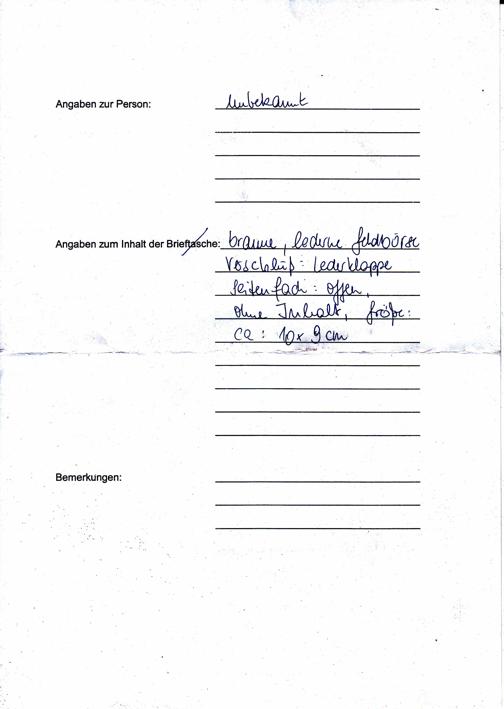 Angaben zur Person: Unbekannt
Angaben zum Inhalt der Brieftasche: braune, lederne Geldbörse
Veschluß: Lederklappe
Seitenfach: offen,
ohne Inhalt, Größe:
ca: 10x9cm
Bemerkungen: